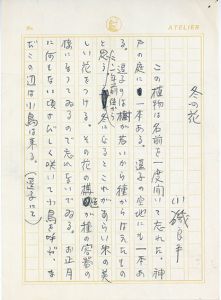 ATELIER
冬の花
小磯良平
この植物は名前を一度聞いて忘れた。神
戸の庭に一本ある。逗子の空地にも一本あ
る。逗子のは樹が若いから種からはえたもの
と思う。冬になるとこれがあらい朱の美
しい花をつける。その花の が種の容器の
様になってゐるので忘れないでゐる。お正月
に何もない頃 しく咲いて小鳥を呼ぶ。ま
だこの辺は小鳥は来る。(逗子にて)